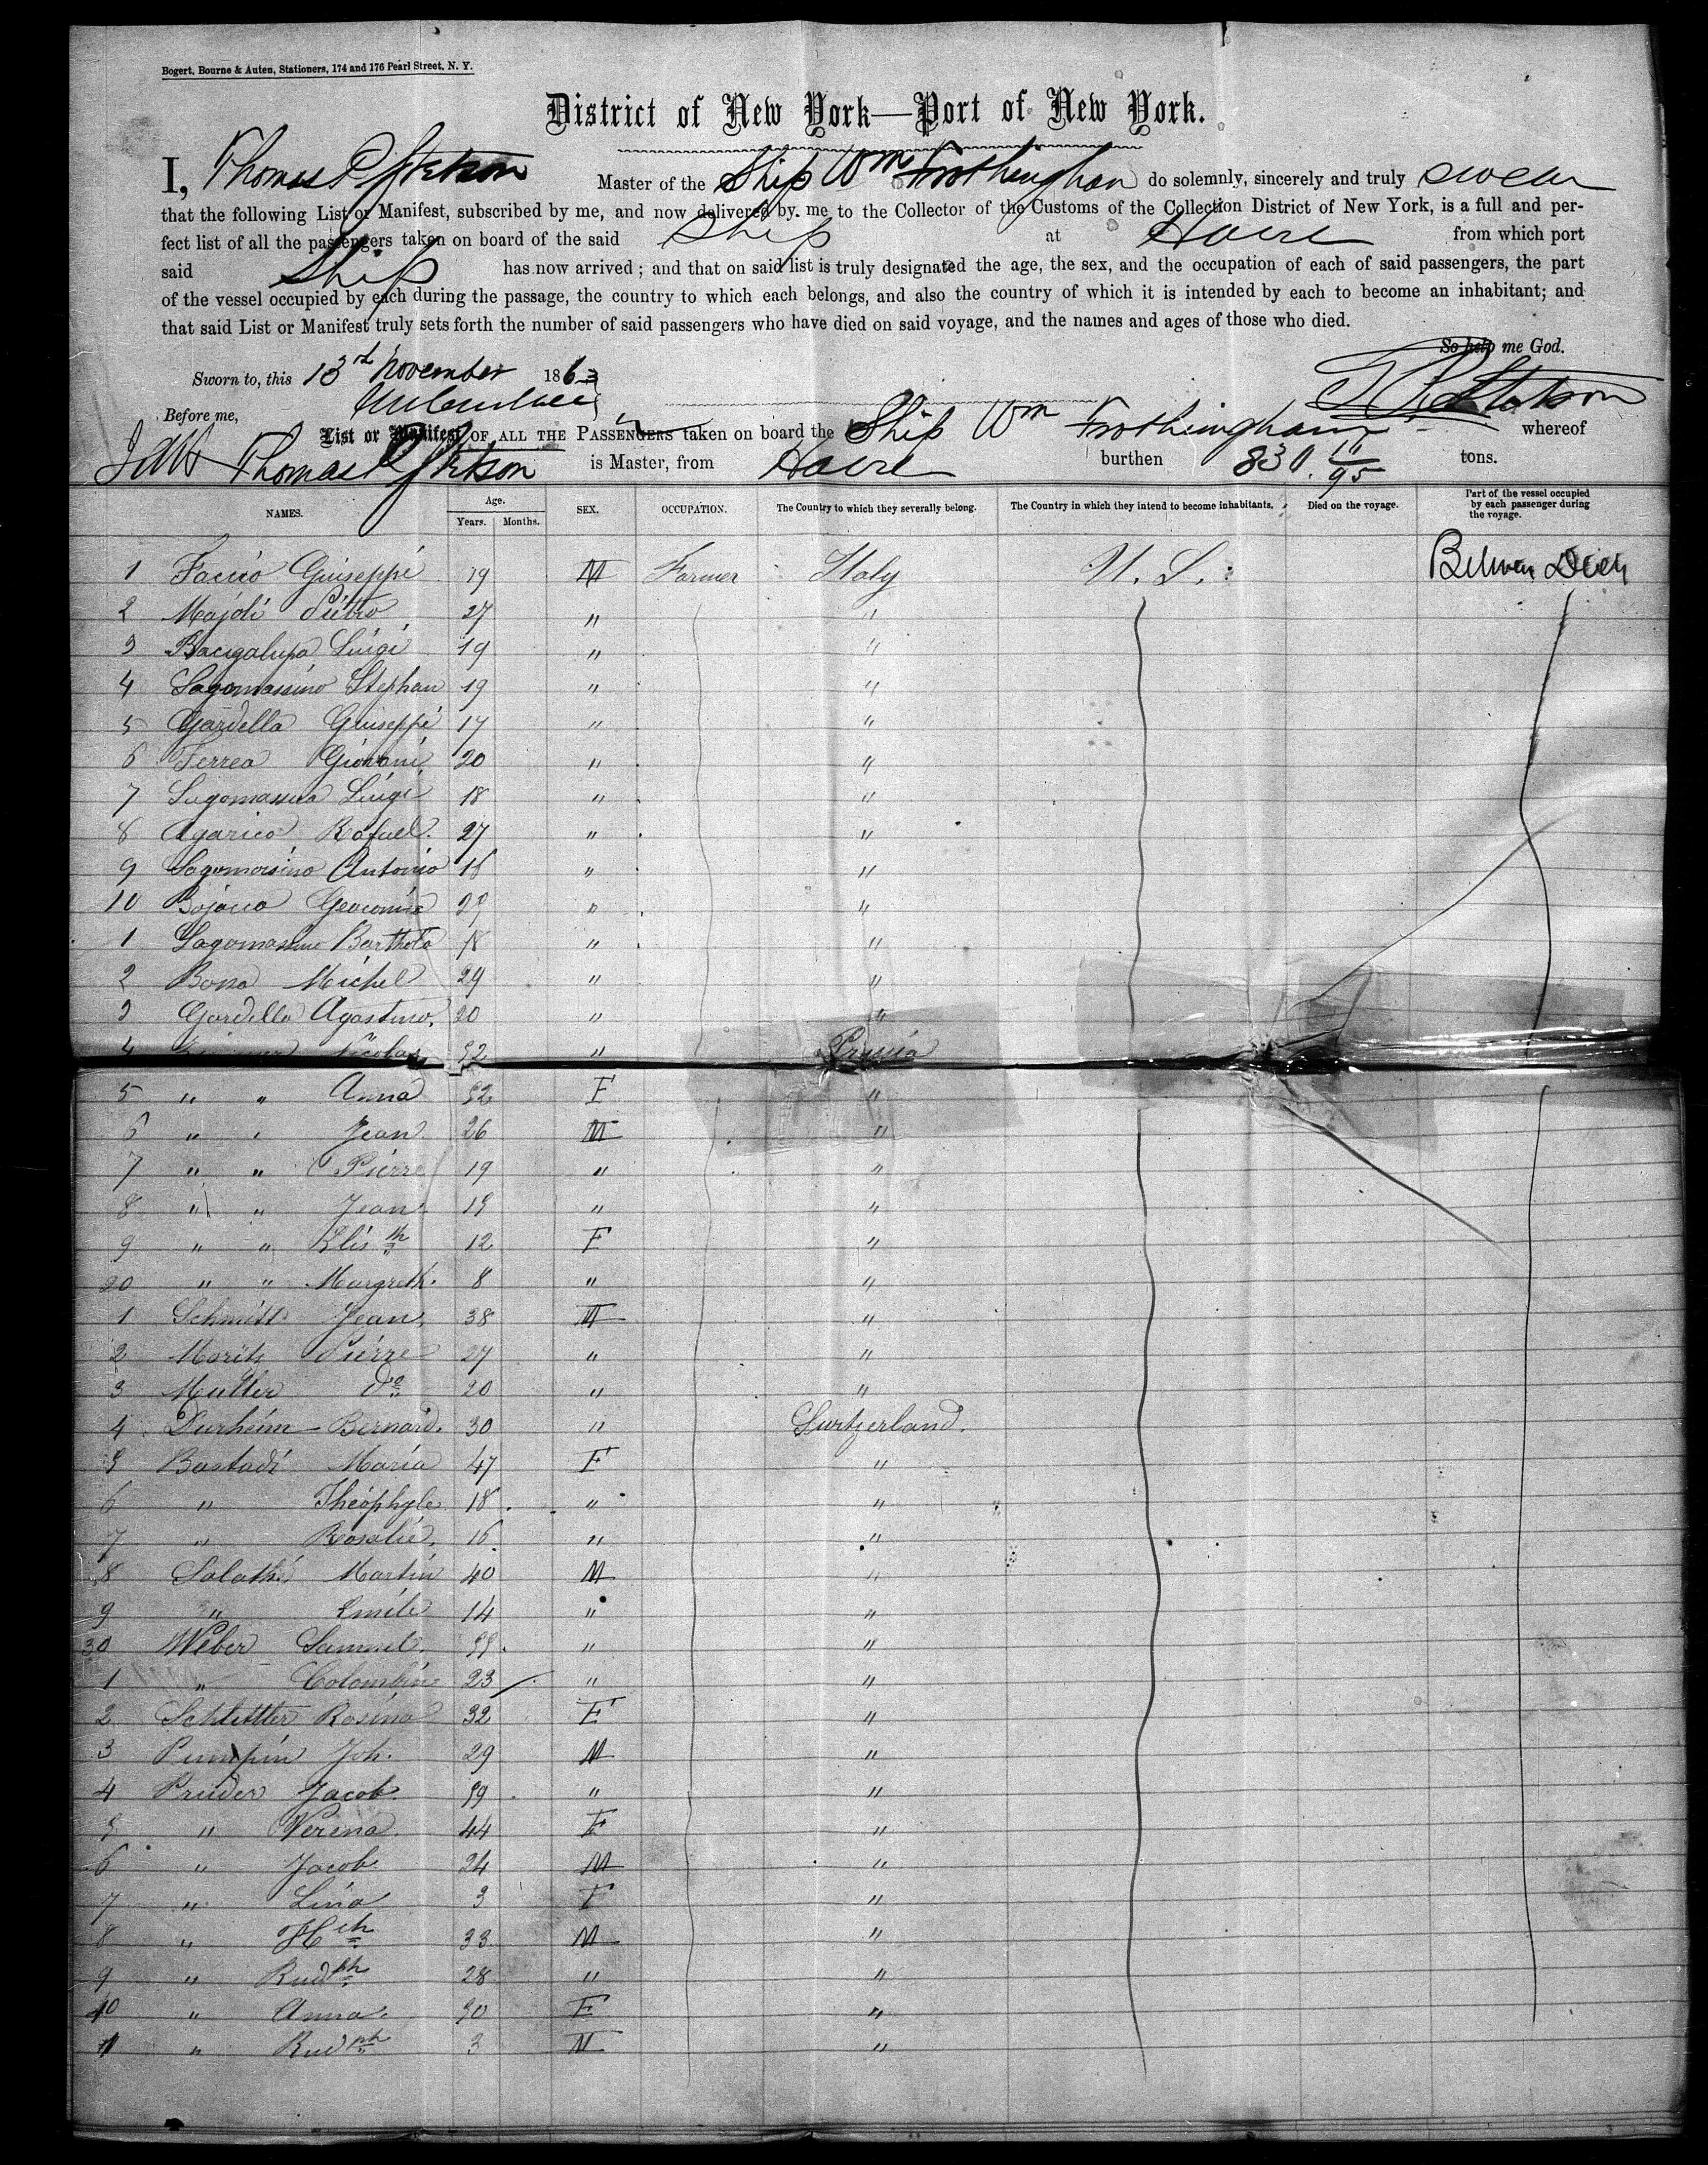 Bogert, Bourne & Auten, Stationers, 174 and 176 Pearl Street, N. Y.
District of New York—Port of New York.
I, Thomas P Stetson Master of the Ship Wm Frothingham do solemnly, sincerely and truly swear
that the following List or Manifest, subscribed by me, and now delivered by me to the Collector of the Customs of the Collection District of New York, is a full and per-
fect list of all the passengers taken on board of the said Ship at Havre from which port
said Ship has now arrived; and that on said list is truly designated the age, the sex, and the occupation of each of said passengers, the part
of the vessel occupied by each during the passage, the country to which each belongs, and also the country of which it is intended by each to become an inhabitant; and
that said List or Manifest truly sets forth the number of said passengers who have died on said voyage, and the names and ages of those who died.
So help me God.
Sworn to, this 13th November 1863
T P Stetson
Before me,
List or Manifest OF ALL THE PASSENGERS taken on board the Ship Wm Frothingham whereof
Thomas P Stetson is Master, from Havre burthen 830 11/95 tons.
NAMES. Age. Years. Months. SEX. OCCUPATION. The Country to which they severally belong. The Country in which they intend to become inhabitants. Died on the voyage. Part of the vessel occupied by each passenger during the voyage.
1 Faccio Giuseppi 19 M Farmer Italy U. S. Between Deck
2 Majoli Pietro 27 " "
3 Bacigalupo Luigi 19 " "
4 Lagomassino Stephan 19 " "
5 Gardella Giuseppi 17 " "
6 Ferrea Giovani 20 " "
7 Luigi 18 " "
8 Agarico Rafael 27 " "
9 Lagomarsino Antonio 16 " "
10 " "
1 Lagomassino Bartholo 18 " "
2 Bona Michel 29 " "
3 Gardella Agostino 20 " "
4 Nicolas 52 " Prussia
5 " " Anna 52 F "
6 " " Jean 26 M "
7 " " Pierre 19 " "
8 " " Jean 15 " "
9 " " Elis th 12 F "
20 " " Margreth 8 " "
1 Schmitt Jean 38 M "
2 Moritz Pierre 27 " "
3 Muller do 20 " "
4 Durheim Bernard 30 " Surtzerland.
5 Bastadi Maria 47 F "
6 " Théophyle 18 " "
7 " Rosalie 16 " "
8 Salathi Martin 40 M "
9 " Emile 14 " "
30 Weber Samuel 55 " "
1 " Colombin 23 " "
2 Schlettler Rosina 32 F "
3 Pumpin Joh. 29 M "
4 Pruder Jacob 59 " "
5 " Verena 44 F "
6 " Jacob 24 M "
7 " Lina 3 F "
8 " Hch 33 M "
9 " Rudph 28 " "
40 " Anna 30 F "
1 " Rudph 3 M "